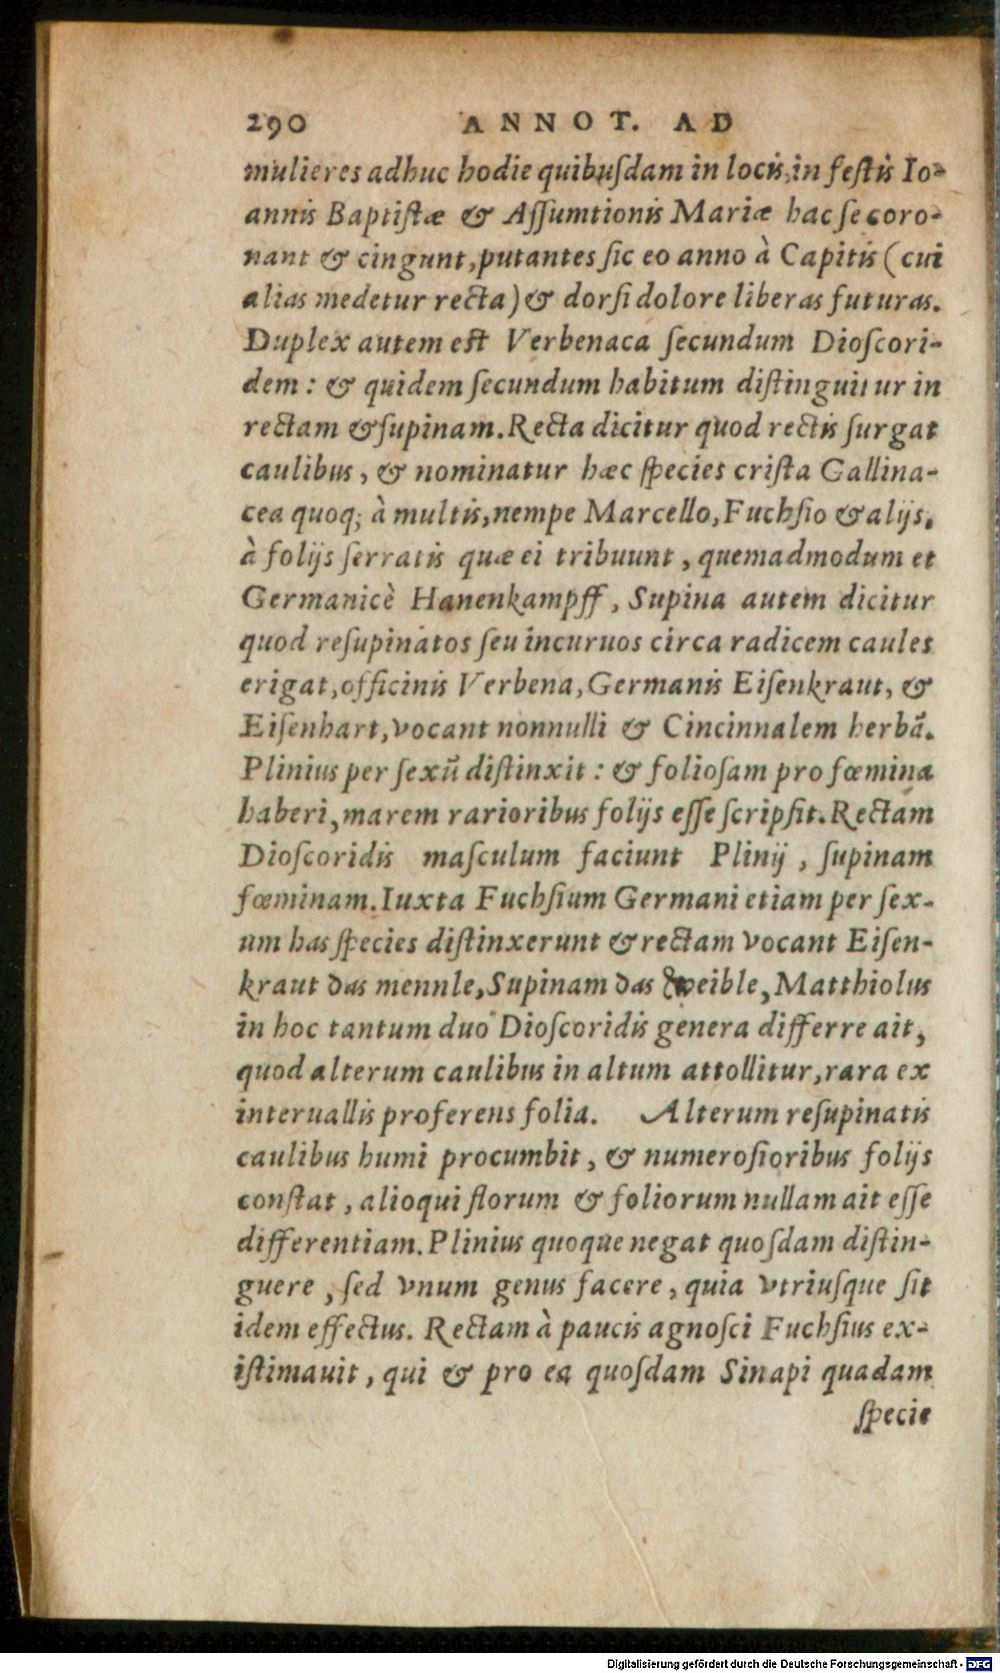 290 ANNOT. AD
mulieres adhuc hodie quibuſdam in locis, in feſtis Io-
annis Baptiſtæ & Aſſumtionis Mariæ hac ſe coro-
nant & cingunt, putantes ſic eo anno à Capitis (cui
alias medetur recta) & dorſi dolore liberas futuras.
Duplex autem eſt Verbenaca ſecundum Dioſcori-
dem: & quidem ſecundum habitum diſtinguitur in
rectam & ſupinam. Recta dicitur quod rectis ſurgat
caulibus, & nominatur hæc ſpecies criſta Gallina-
cea quoq; à multis, nempe Marcello, Fuchſio & alijs,
à folijs ſerratis quæ ei tribuunt, quemadmodum et
Germanicè Hanenkampff, Supina autem dicitur
quod reſupinatos ſeu incuruos circa radicem caules
erigat, officinis Verbena, Germanis Eiſenkraut, &
Eiſenhart, vocant nonnulli & Cincinnalem herbã.
Plinius per ſexũ diſtinxit: & folioſam pro fœmina
haberi, marem rarioribus folijs eſſe ſcripſit. Rectam
Dioſcoridis maſculum faciunt Plinij, ſupinam
fœminam. Iuxta Fuchſium Germani etiam per ſex-
um has ſpecies diſtinxerunt & rectam vocant Eiſen-
kraut das mennle, Supinam das weible, Matthiolus
in hoc tantum duo Dioſcoridis genera differre ait,
quod alterum caulibus in altum attollitur, rara ex
interuallis proferens folia. Alterum reſupinatis
caulibus humi procumbit, & numeroſioribus folijs
conſtat, alioqui florum & foliorum nullam ait eſſe
differentiam. Plinius quoque negat quoſdam diſtin-
guere, ſed vnum genus facere, quia vtriuſque ſit
idem effectus. Rectam à paucis agnoſci Fuchſius ex-
iſtimauit, qui & pro ea quoſdam Sinapi quadam
ſpecie
Digitalisierung gefördert durch die Deutsche Forschungsgemeinschaft - DFG